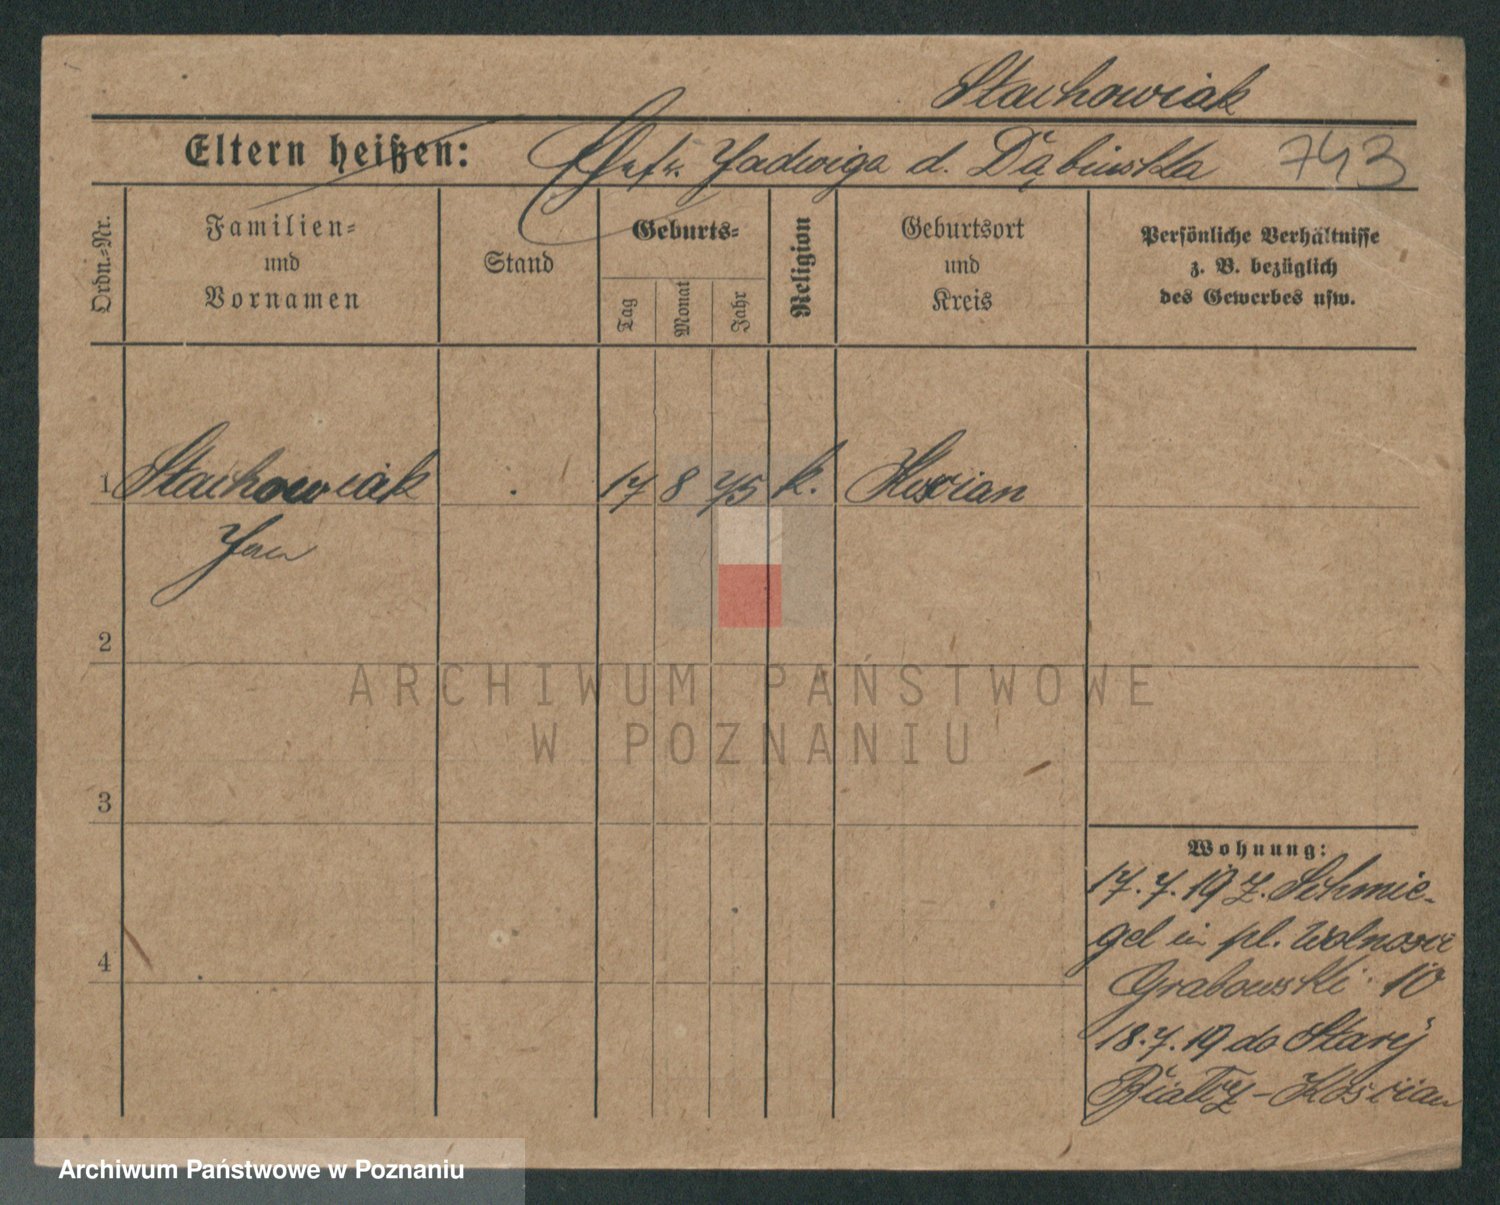 Stachowiak
Eltern heißen: Jadwiga d. Dąbinska 743
Ordn.=Nr.
Familien=
und
Vornamen
Stand
Geburts=
Tag
Monat
Jahr
Religion
Geburtsort
und
Kreis
Persönliche Verhältnisse
z. B. bezüglich
des Gewerbes usw.
1 Stachowiak . 17 8 75 k. Koscian
Jan
2
ARCHIWUM PAŃSTWOWE
W POZNANIU
3
Wohnung:
17.7.19 z. Schmie-
gel in pl. Wolnosci
4
Grabowski 10
18.7.19 do Stary
Białcz - Koscian
Archiwum Państwowe w Poznaniu